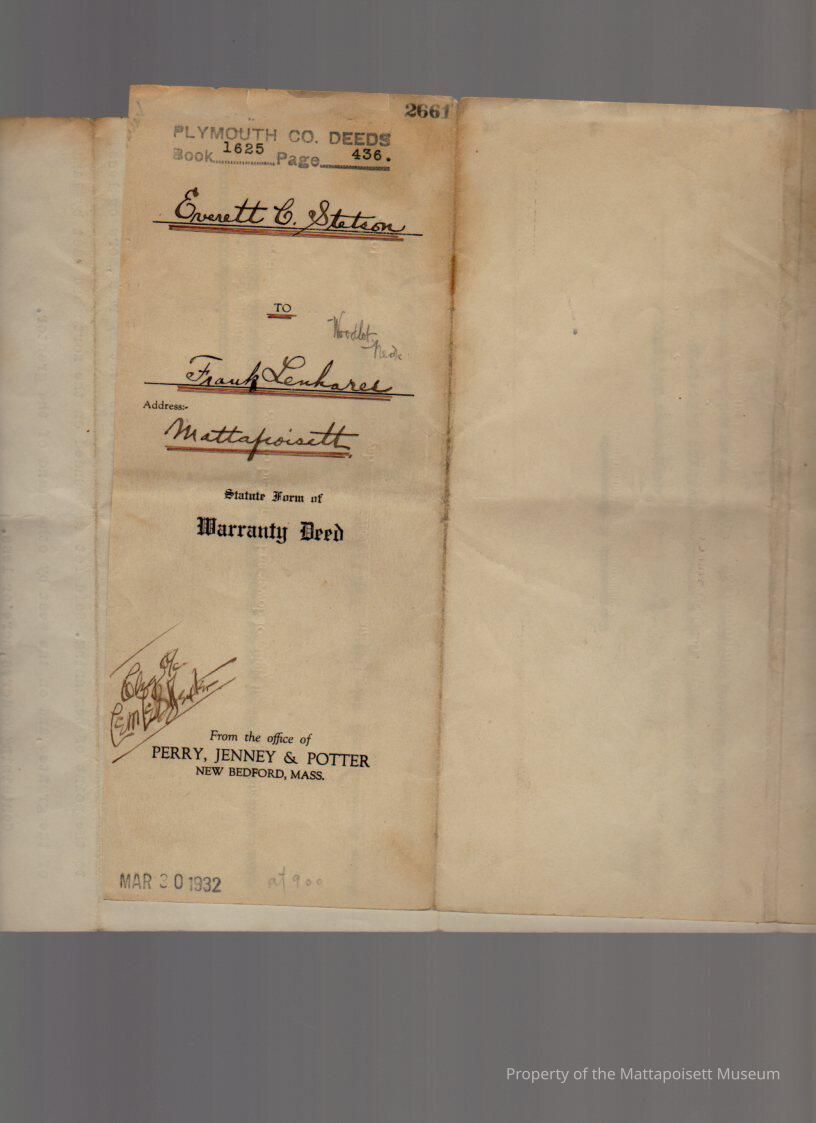 2661
PLYMOUTH CO. DEEDS
Book 1625 Page 436.
Everett C. Stetson
TO
Woodlot
Neck
Frank Lenhares
Address:-
Mattapoisett
Statute Form of
Warranty Deed
From the office of
PERRY, JENNEY & POTTER
NEW BEDFORD, MASS.
MAR 30 1932 at 900
Property of the Mattapoisett Museum